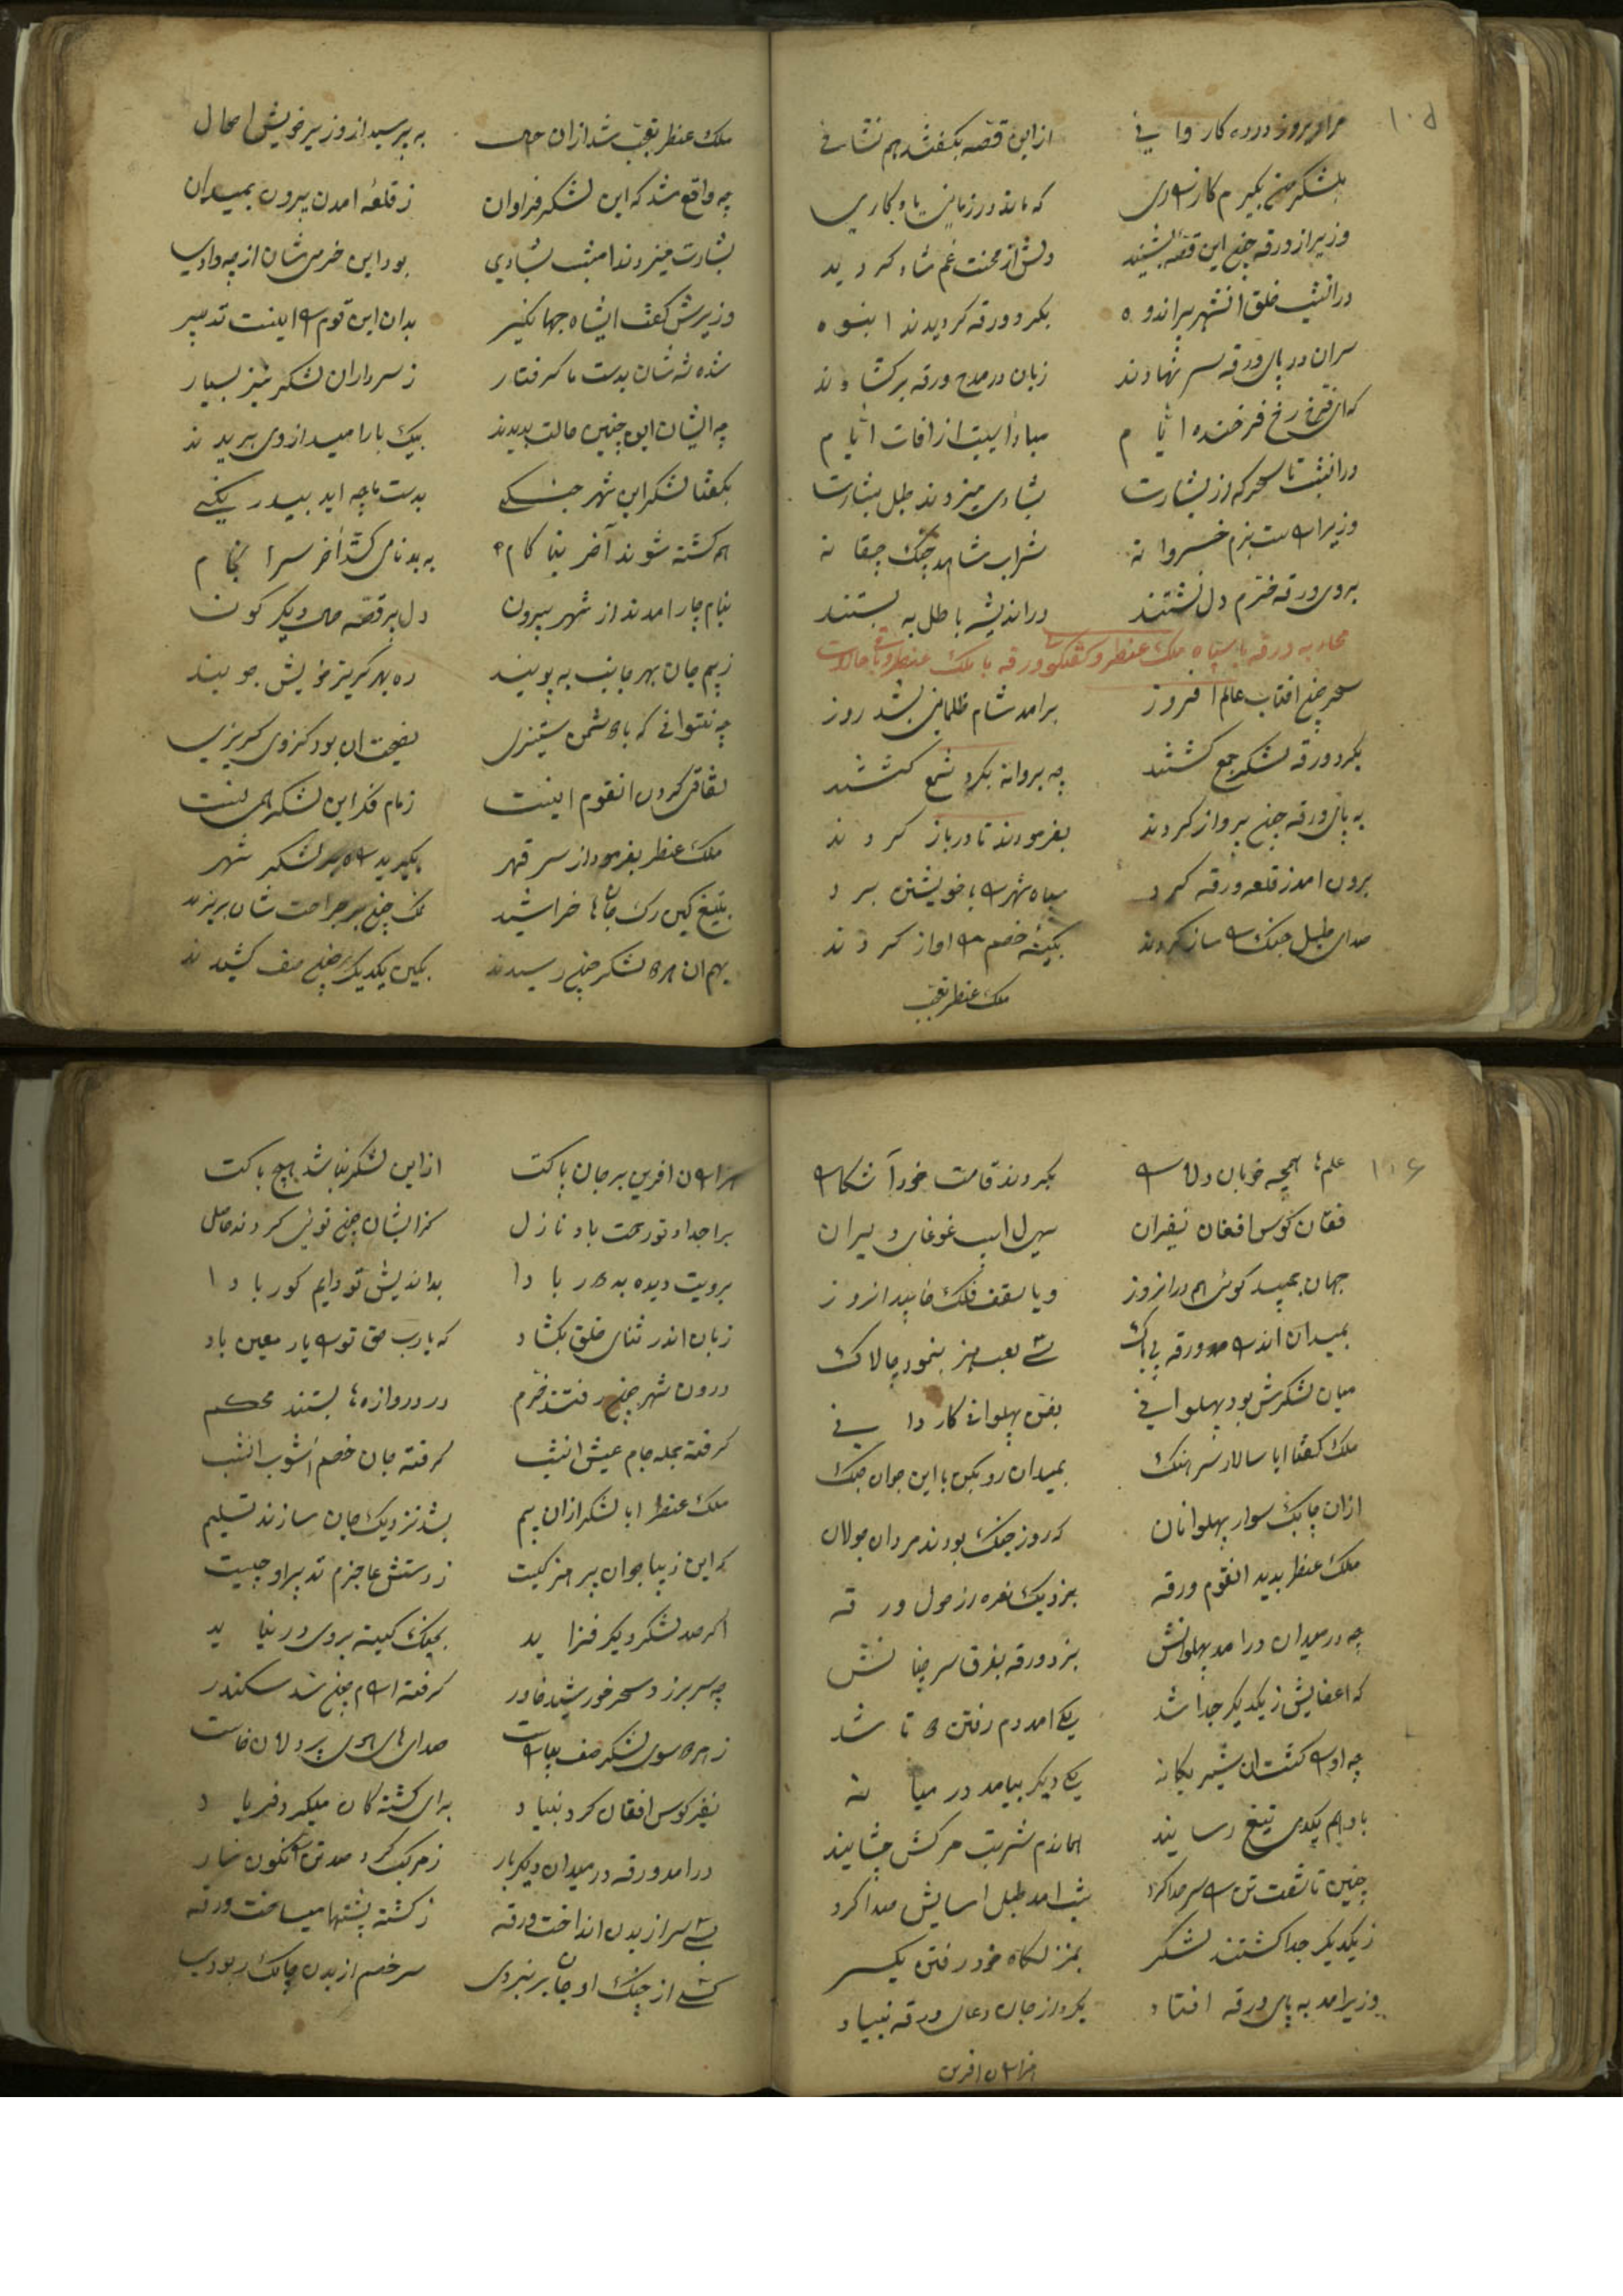 ۱۰۵
مرا امروز در ره کاروانی از این قصه بگفتند هم نشانی
بلشکر من بگیرم کارزاری که ماند در زمانی یادگاری
وزیر از ورقه چون این قصه بشنید دلش از محنت غم شاد گردید
در انشب خلق انشهر پر اندوه بگرد ورقه گردیدند انبوه
سران در پای ورقه سر نهادند زبان در مدح ورقه برکشادند
که ای فرخ رخ فرخنده ایام مبادا سیبت از افات ایام
در انشب تا سحرکه از بشارت بشادی میزدند طبل بشارت
وزیر اراست بزم خسروانه شراب شاهد چنگ چغانه
بروی ورقه خرم دل نشستند در اندیشه باطل به بستند
محاربه ورقه با سپاه ملک عنطر و گفتگوی ورقه با ملک عنطر
سحر چون افتاب عالم افروز برامد شام ظلمانی بشد روز
بگرد ورقه لشکر جمع گشتند چه پروانه بگرد شمع گشتند
به پای ورقه چون پرواز کردند بفرمودند تا در باز کردند
برون امد ز قلعه ورقه کرد سپاه شهر را با خویشتن برد
صدای طبل جنگ را ساز کردند بکینه خصم را اواز کردند
ملک عنطر تعجب
ملک عنطر تعجب شد از ان حال به پرسید از وزیر خویش احوال
چه واقع شد که این لشکر فراوان ز قلعه امدن بیرون بمیدان
بشارت میزدند امشب بشادی بود این خرمی شان از چه وادی
وزیرش گفت ای شاه جهانگیر بدان این قوم را اینست تدبیر
شده شه شان بدست ما گرفتار ز سرداران لشکر نیز بسیار
چه ایشان این چنین حالت بدیدند بیک بار امید از وی بریدند
بگفتا لشکر این شهر جنگی بدست ما چه اید بیدرنگی
همه کشته شوند آخر بناکام به بدنامی کشد اخر سرانجام
بنام چار امدند از شهر بیرون دل پر قصه حال دیگرگون
ز بیم جان بهر جانب به پویند ره بهر گریز خویش جویند
چه نتوانی که با دشمن ستیزی نصیحت ان بود کزوی گریزی
نفاق کردن انقوم اینست زمام فکر این لشکر همینست
ملک عنطر بفرمود از سر قهر بگیرید لشکر شهر
بتیغ کین رک جانها خراشید نمک چون بر جراحت شان بریزید
بهم ان هر دو لشکر چون رسیدند بکین یکدیگر چون صف کشیدند
۱۰۶
علمها همچه خوبان دلارا بکردند قامت خود آشکارا
فغان کوس افغان نفیران سهیل اسب غوغای دلیران
جهان بچید گوئی هم در انروز و یا سقف فلک خابید انروز
بمیدان اندرامد ورقه بی باک بسی لعب هنر بنمود چالاک
میان لشکرش بود پهلوانی بفن پهلوانی کاردانی
ملک گفتا ایا سالار سرهنگ بمیدان رو بکن با این جوان جنگ
ازان چابک سوار پهلوانان که روز جنگ بودند مردان جولان
ملک عنطر بدید انقوم ورقه بزد یک نعره رزمول ورقه
چه در میدان درامد پهلوانش بزد ورقه بفرق سر چنانش
که اعضایش ز یکدیگر جدا شد یکی امد دم رفتن دو تا شد
چه او را کشت ان شیر یگانه یکی دیگر بیامد در میانه
باو هم یکدمی تیغ رسانید هماندم شربت مرگش چشانید
چنین تا شصت تن را سر جدا کرد شب امد طبل اسایش صدا کرد
ز یکدیگر جدا گشتند لشکر بمنزلگاه خود رفتن یکسر
وزیر امد به پای ورقه افتاد بکرد از جان دعای ورقه بنیاد
هزاران افرین
هزاران افرین بر جان پاکت از این لشکر نباشد هیچ باکت
بر اجداد تو رحمت باد نازل کز ایشان چون توئی کردند حاصل
برویت دیده بد دور بادا بد اندیش تو دایم کور بادا
زبان اندر ثنای خلق بکشاد که یارب حق تو را یار معین باد
درون شهر چون رفتند خرم در دروازه ها بستند محکم
گرفته جمله جام عیش انشب گرفته جان خصم اشوب انشب
ملک عنطر ابا لشکر ازان بیم بشد نزدیک جان سازند تسلیم
که این زیبا جوان پر هنر کیست ز دستش عاجزم تدبیر او چیست
اگر صد لشکر دیگر فزاید بجنگ کینه بروی در نیاید
چه سر برزد سحر خورشید خاور گرفته ارام چون شد سکندر
ز هر دو سوی لشکر صف بیاراست صدای های هوی پر دلان خاست
نفیر کوس افغان کرد بنیاد برای کشته گان میکرد فریاد
درامد ورقه در میدان دیگر بار ز مرکب کرد صد تن را نگون سار
بسی سر از بدن انداخت ورقه ز کشته پشتها میساخت ورقه
کسی از چنگ او جان بر نبردی سر خصم از بدن چابک ربودی